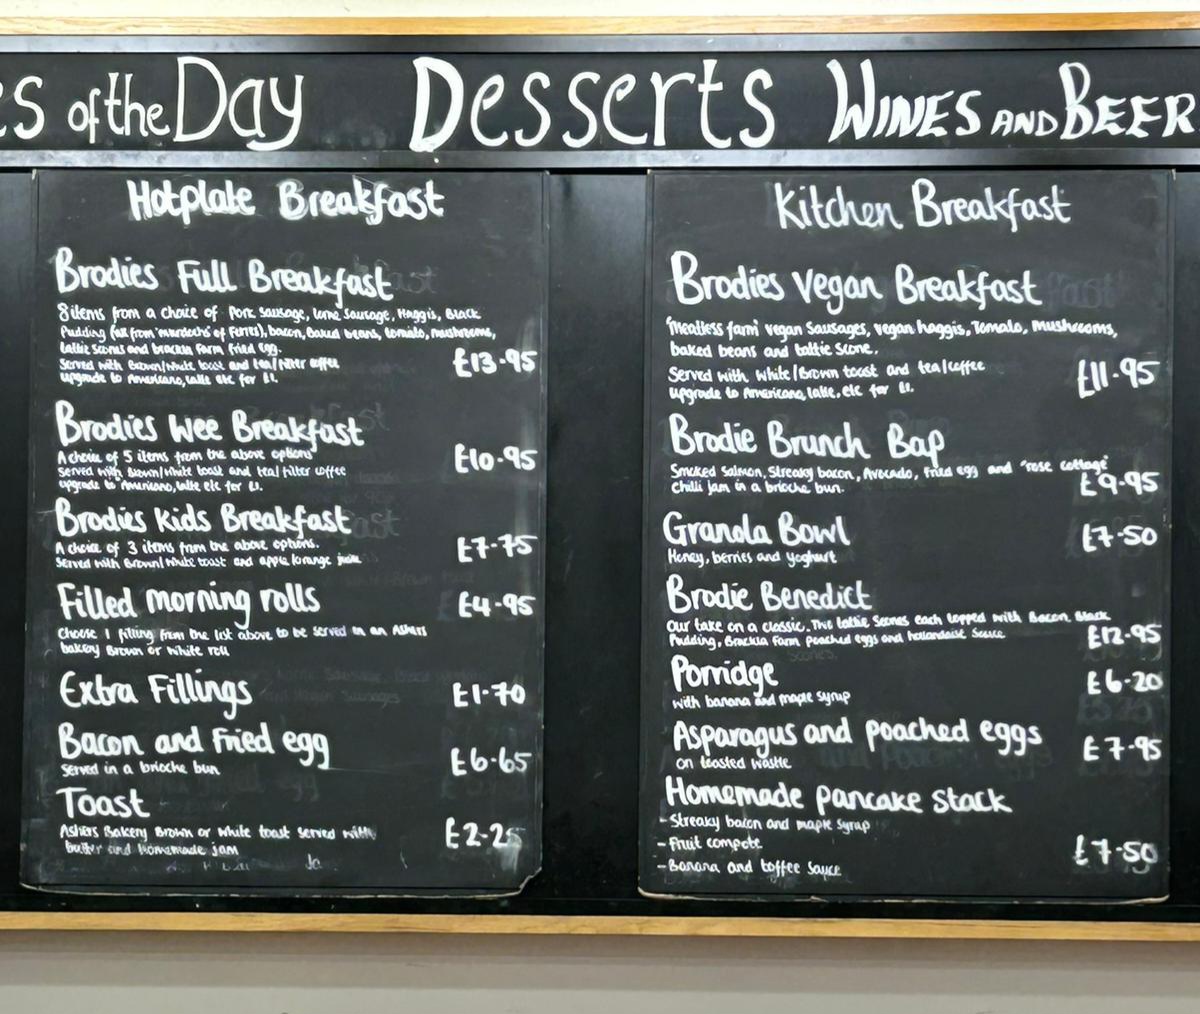 es of the Day Desserts WINES AND BEER
Hotplate Breakfast
Brodies Full Breakfast
8 items from a choice of Pork Sausage, Lorne Sausage, Haggis, Black
Pudding (all from 'murdochs' of Forres), bacon, baked beans, tomato, mushrooms,
tattie scones and bracklia Farm fried egg.
Served with Brown/white toast and tea/filter coffee
upgrade to Americano, latte etc for £1.
£13.95
Brodies Wee Breakfast
A choice of 5 items from the above options
Served with Brown/white toast and tea/filter coffee
upgrade to Americano, latte etc for £1.
£10.95
Brodies Kids Breakfast
A choice of 3 items from the above options.
Served with Brown/white toast and apple/orange juice
£7.75
Filled morning rolls
£4.95
Choose 1 filling from the list above to be served in an Ashers
bakery Brown or white roll
Extra Fillings
£1.70
Bacon and Fried egg
Served in a brioche bun
£6.65
Toast
Ashers Bakery Brown or white toast served with
butter and homemade jam
£2.25
Kitchen Breakfast
Brodies Vegan Breakfast
'Meatless farm' vegan Sausages, vegan haggis, Tomato, Mushrooms,
baked beans and tattie scone.
Served with white/Brown toast and tea/coffee
upgrade to Americano, latte, etc for £1.
£11.95
Brodie Brunch Bap
Smoked Salmon, Streaky bacon, Avocado, fried egg and "rose cottage"
Chilli jam in a brioche bun.
£9.95
Granola Bowl
£7.50
Honey, berries and yoghurt
Brodie Benedict
Our take on a classic. Two tattie Scones each topped with Bacon, Black
Pudding, Bracklia Farm poached eggs and hollandaise Sauce
£12.95
Porridge
£6.20
with banana and maple syrup
Asparagus and poached eggs
on toasted
£7.95
Homemade pancake stack
- Streaky bacon and maple syrup
- Fruit compote
£7.50
- Banana and toffee sauce